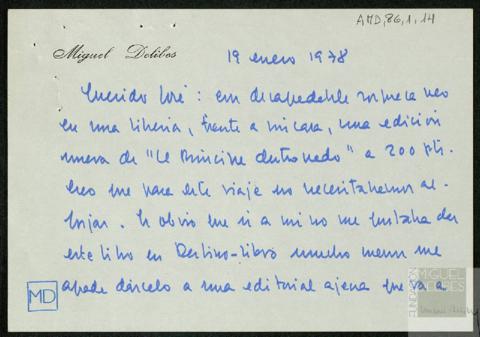 AMD, 86, 1, 14
Miguel Delibes
19 enero 1978
Querido José: con desagradable sorpresa veo
en una librería, frente a mi casa, una edición
nueva de "El Príncipe destronado" a 200 pts.
Creo que para este viaje no necesitábamos al-
forjas. Es obvio que si a mí no me gustaba dar
este libro en Destino-libro mucho menos me
agrada dárselo a una editorial ajena que va a
MD
FUNDACIÓN
MIGUEL
DELIBES